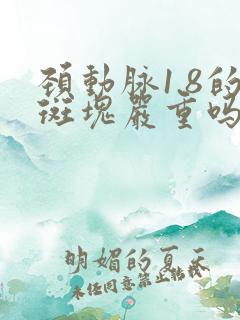 頚動脉1.8的
斑塊嚴重吗
明媚的夏天
未经同意禁止转载